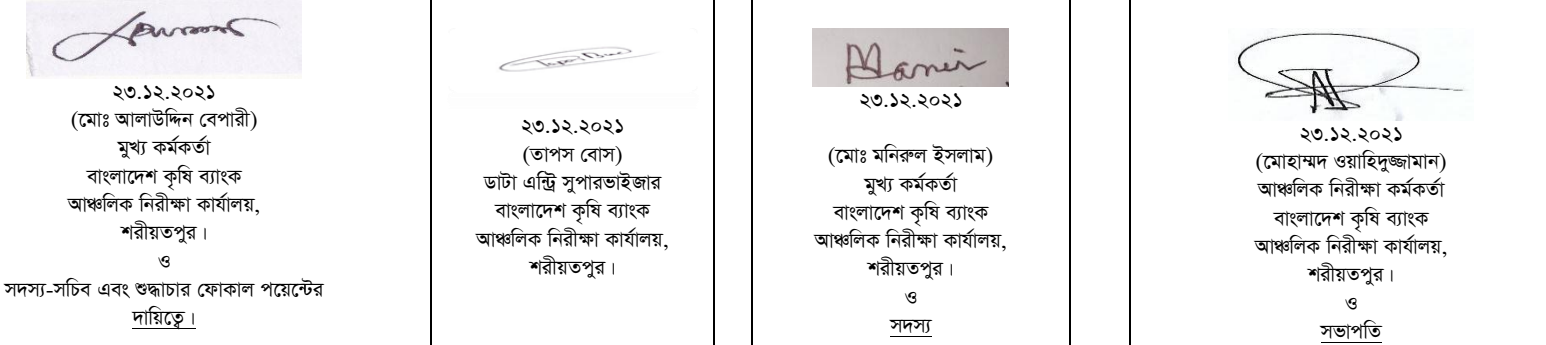 ২৩.১২.২০২১
(মোঃ আলাউদ্দিন বেপারী)
মুখ্য কর্মকর্তা
বাংলাদেশ কৃষি ব্যাংক
আঞ্চলিক নিরীক্ষা কার্যালয়,
শরীয়তপুর।
ও
সদস্য-সচিব এবং শুদ্ধাচার ফোকাল পয়েন্টের
দায়িত্বে।
২৩.১২.২০২১
(তাপস বোস)
ডাটা এন্ট্রি সুপারভাইজার
বাংলাদেশ কৃষি ব্যাংক
আঞ্চলিক নিরীক্ষা কার্যালয়,
শরীয়তপুর।
২৩.১২.২০২১
(মোঃ মনিরুল ইসলাম)
মুখ্য কর্মকর্তা
বাংলাদেশ কৃষি ব্যাংক
আঞ্চলিক নিরীক্ষা কার্যালয়,
শরীয়তপুর।
ও
সদস্য
২৩.১২.২০২১
(মোহাম্মদ ওয়াহিদুজ্জামান)
আঞ্চলিক নিরীক্ষা কর্মকর্তা
বাংলাদেশ কৃষি ব্যাংক
আঞ্চলিক নিরীক্ষা কার্যালয়,
শরীয়তপুর।
ও
সভাপতি